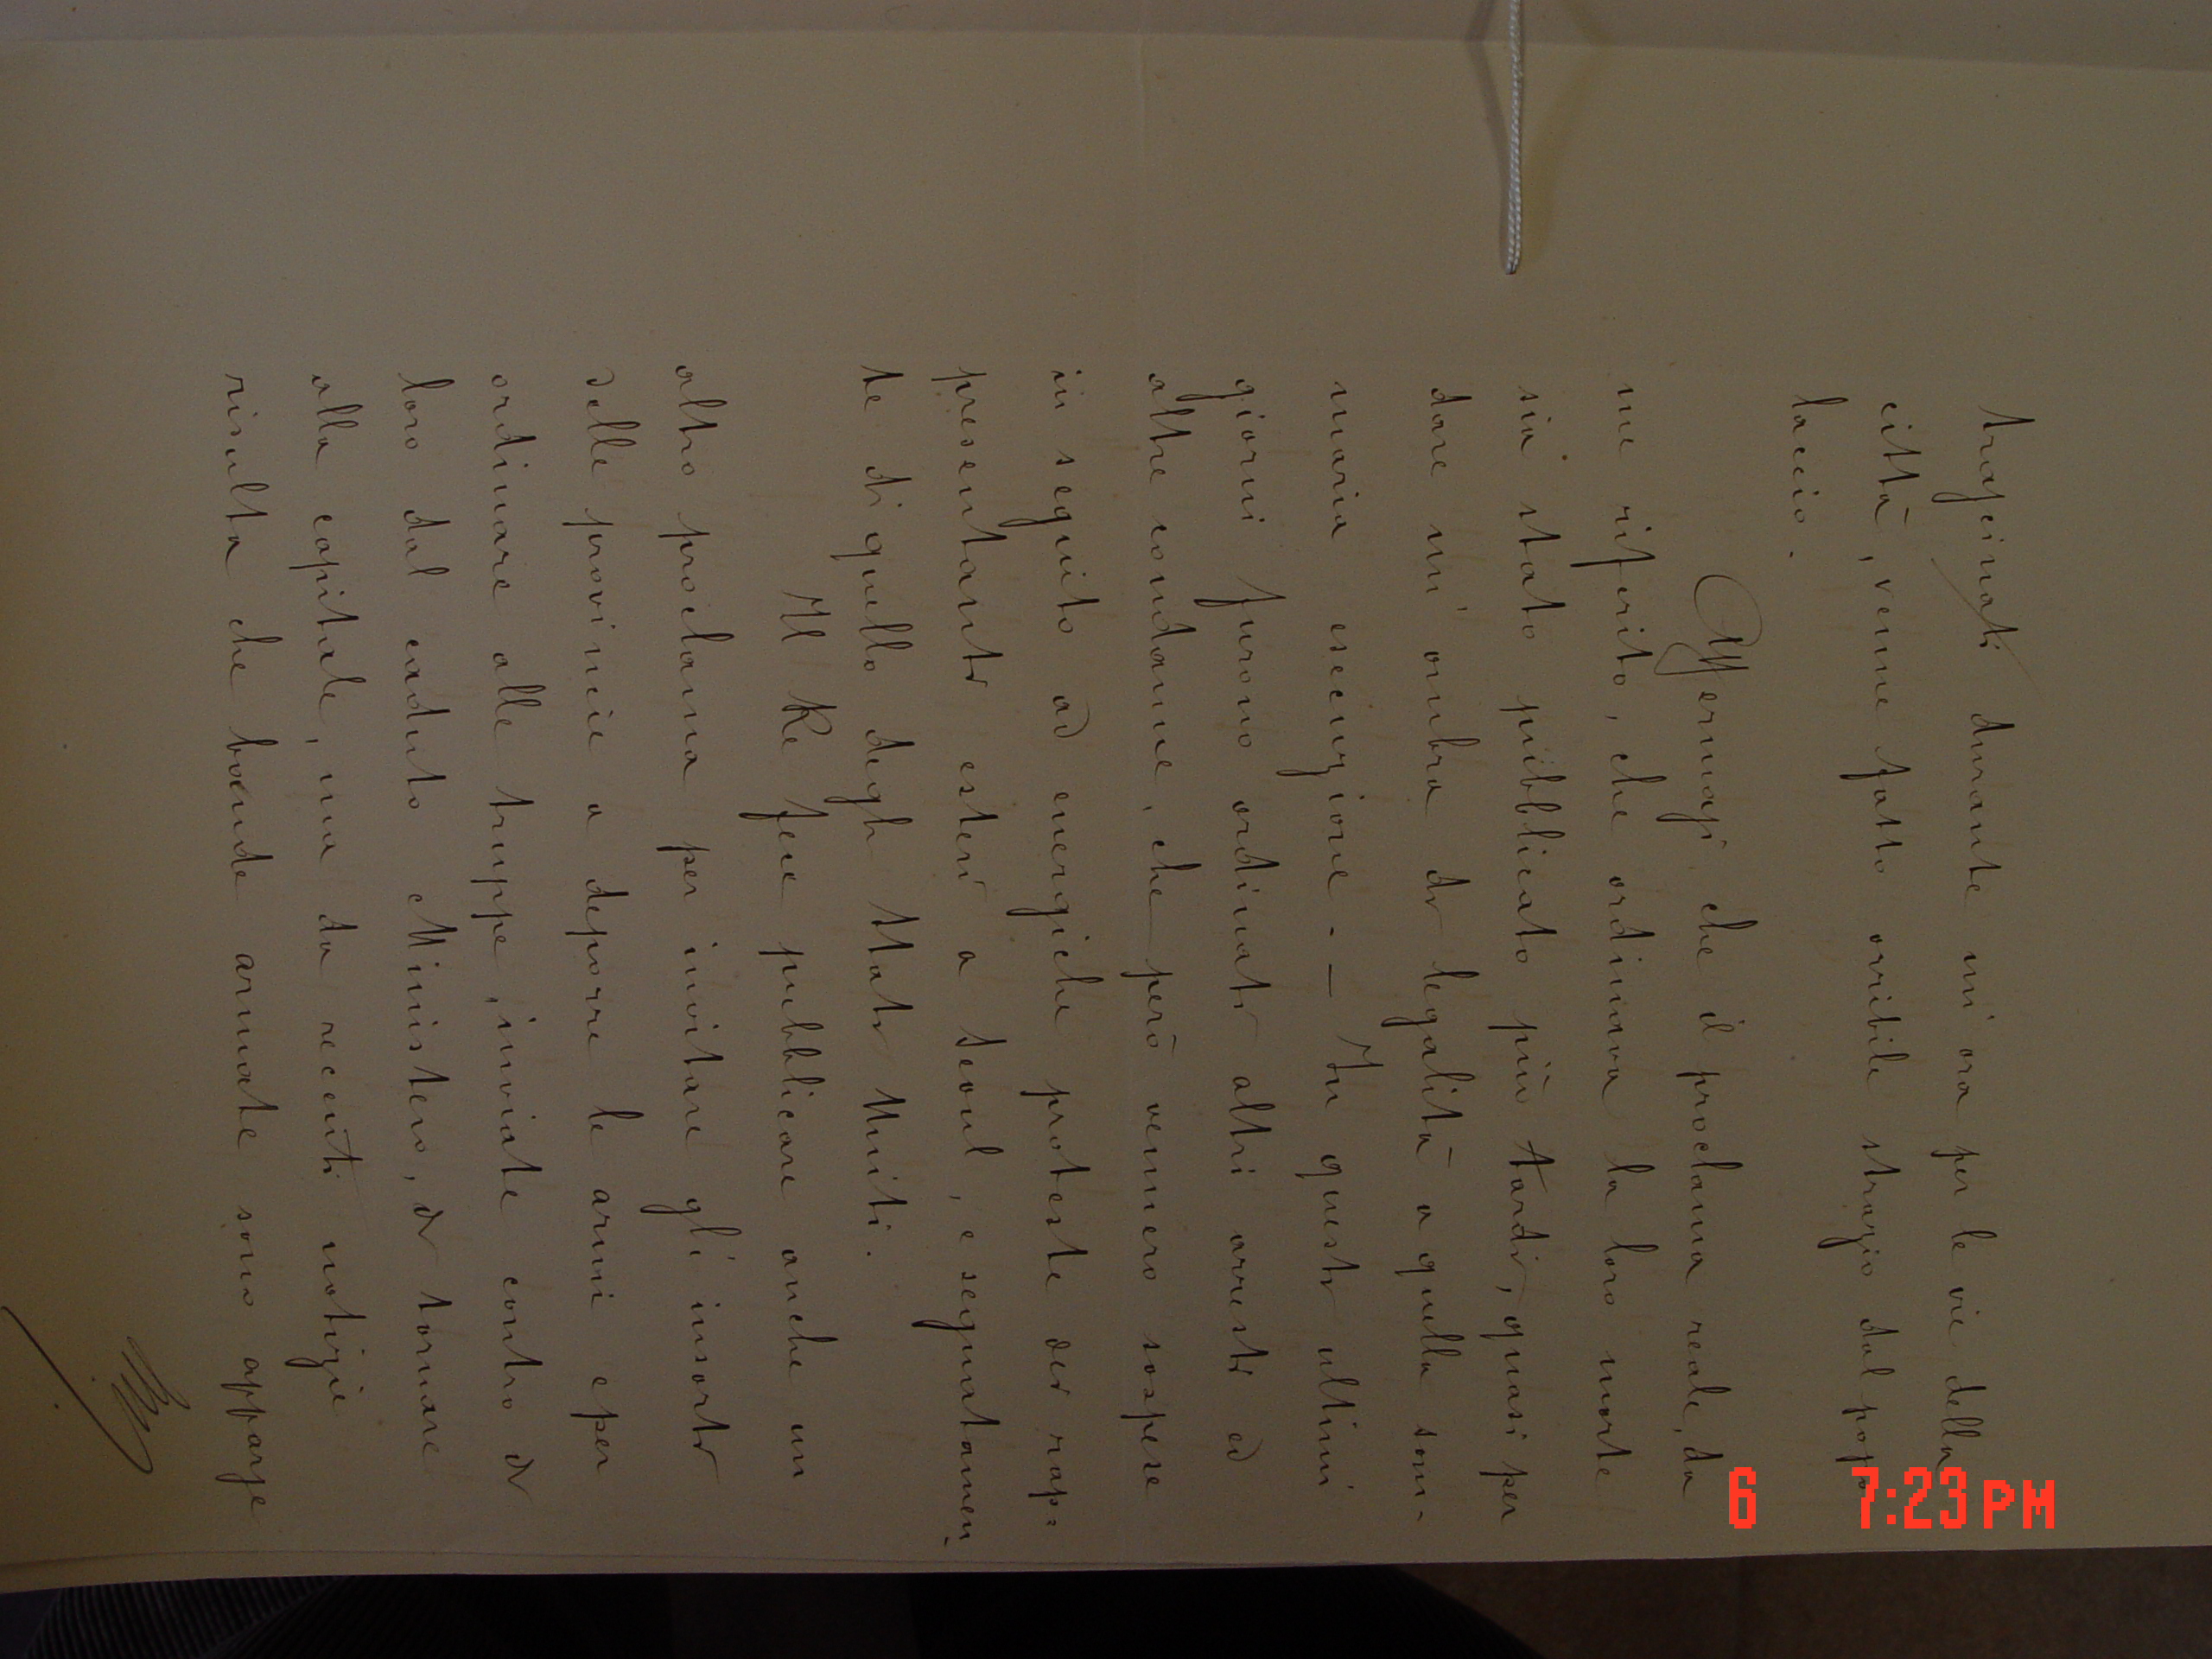 trascinati durante un'ora per le vie della
città, venne fatto orribile strazio dal popo
laccio.
Vernassi che il proclama reale, da
me riferito, che ordinava la loro morte
sia stato pubblicato più tardi, quasi per
dare un' ombra di legalità a quella som-
maria esecuzione. — In questi ultimi
giorni furono ordinati altri arresti ed
altre condanne, che però vennero sospese
in seguito ad energiche proteste dei rap=
presentanti esteri a Seoul, e segnatamen
te di quello degli Stati Uniti.
Il Re fece pubblicare anche un
altro proclama per invitare gl'insorti
delle provincie a deporre le armi e per
ordinare alle truppe, inviate contro di
loro dal caduto Ministero, di tornare
alla capitale, ma da recenti notizie
risulta che bande armate sono apparse
6 7:23 PM